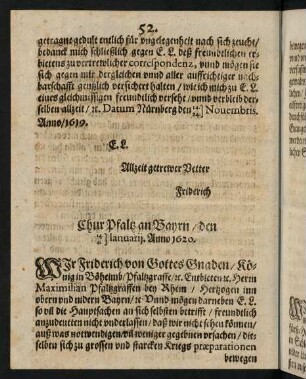 52.
getragne gedult entlich für vngelegenheit nach sich zeucht/
bedanck mich schließlich gegen E. L. deß freundtlichen er
bietens zu vertrewlicher correspondenz, vnnd mögen sie
sich gegen mir dergleichen vnnd aller auffrichtiger nach-
barschafft gentzlich versichert halten/ wie ich mich zu E. L.
eines gleichmässigen freundlich versehe/ vnnd verbleib der-
selben allzeit/ ꝛc. Datum Nürnberg den Nouembris.
Anno/1619.
E. L.
Allzeit getrewer Vetter
Friderich
Chur Pfaltz an Bayrn/ den
Ianuarij. Anno 1620.
WIr Friderich von Gottes Gnaden/ Kö-
nig in Böheimb/ Pfaltzgraffe/ ꝛc. Embieten ꝛc. Herrn
Maximilian Pfaltzgraffen bey Rhein/ Hertzogen inn
obern vnd nidern Bayrn/ ꝛc. Vnnd mögen darneben E. L.
so vil die Hauptsachen an sich selbsten betrifft/ freundtlich
anzudeuten nicht vnderlassen/ daß wir nicht sehen können/
auß was notwendigen/ vil weniger gegebnen vrsachen/ die-
selbe sich zu grossen vnd starcken Kriegs præparationen
bewegen